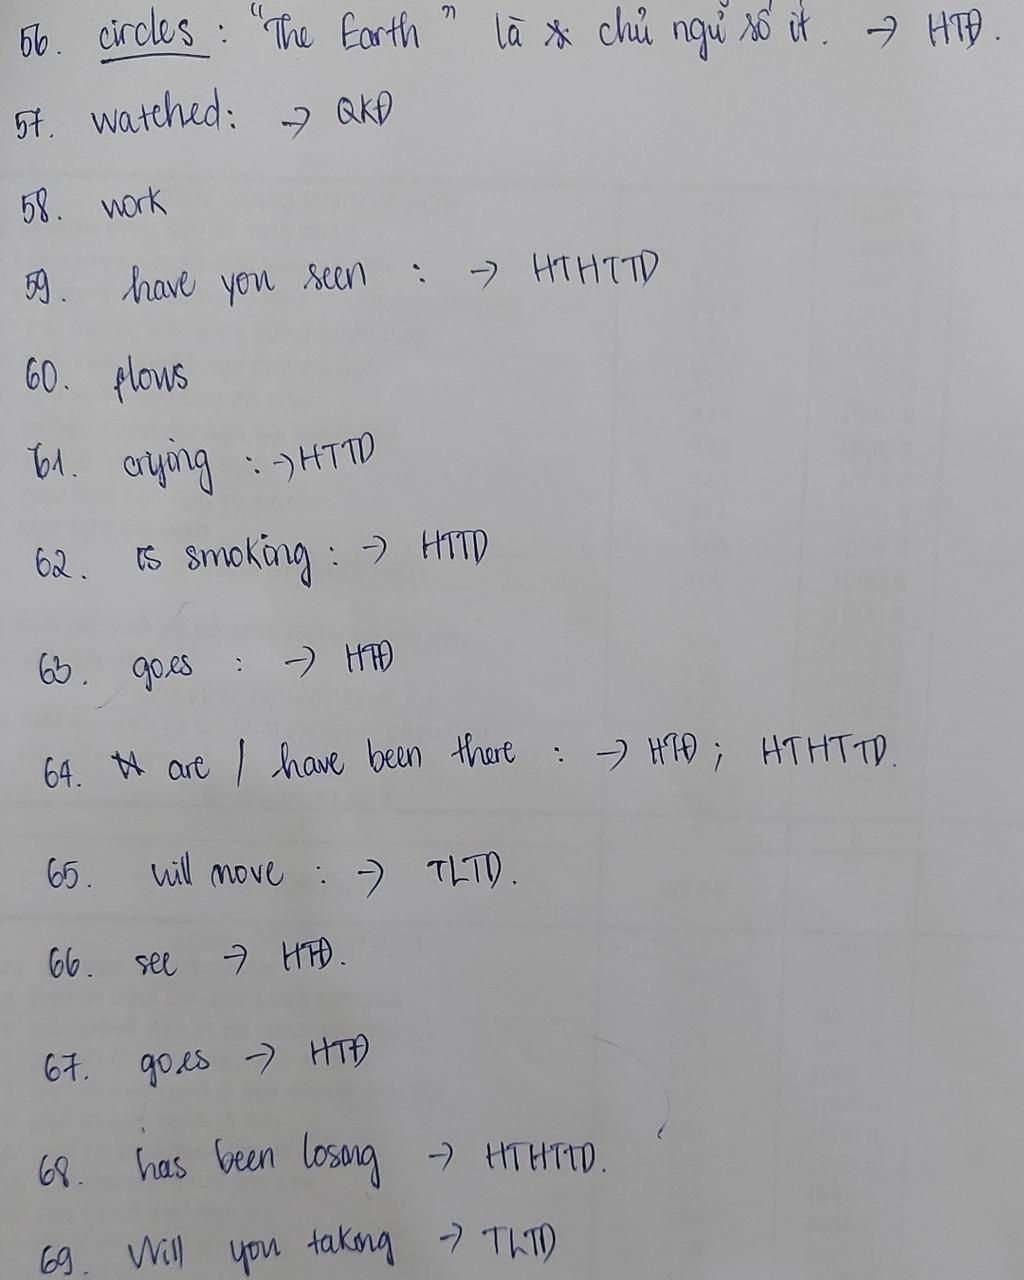 56. circles : "The Earth" là chủ ngữ số ít. → HTĐ.
57. watched: → QKĐ
58. work
59. have you seen : → HTHTTD
60. flows
61. crying : → HTTD
62. is smoking : → HTTD
63. goes : → HTĐ
64. are / have been there : → HTĐ ; HTHTTD.
65. will move : → TLTD.
66. see → HTĐ.
67. goes → HTĐ
68. has been losong → HTHTTD.
69. Will you takong → TLTD